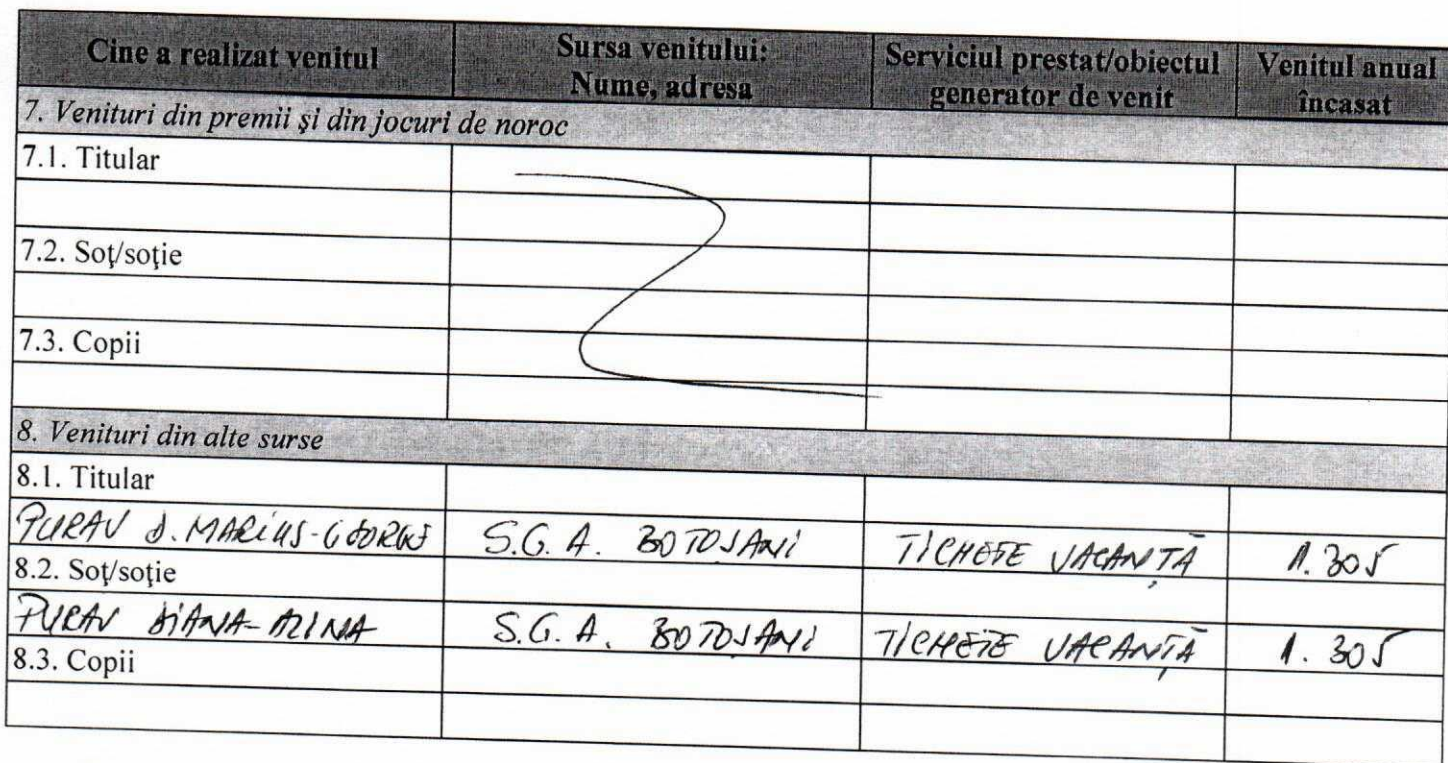 Cine a realizat venitul
Sursa venitului:
Nume, adresa
Serviciul prestat/obiectul
generator de venit
Venitul anual
încasat
7. Venituri din premii şi din jocuri de noroc
7.1. Titular
7.2. Soţ/soţie
7.3. Copii
8. Venituri din alte surse
8.1. Titular
PURAV D. MARIUS-GEORGE S.G.A. BOTOŞANI TICHETE VACANŢĂ 1.305
8.2. Soţ/soţie
PURAV DIANA-ALINA S.G.A. BOTOŞANI TICHETE VACANŢĂ 1.305
8.3. Copii